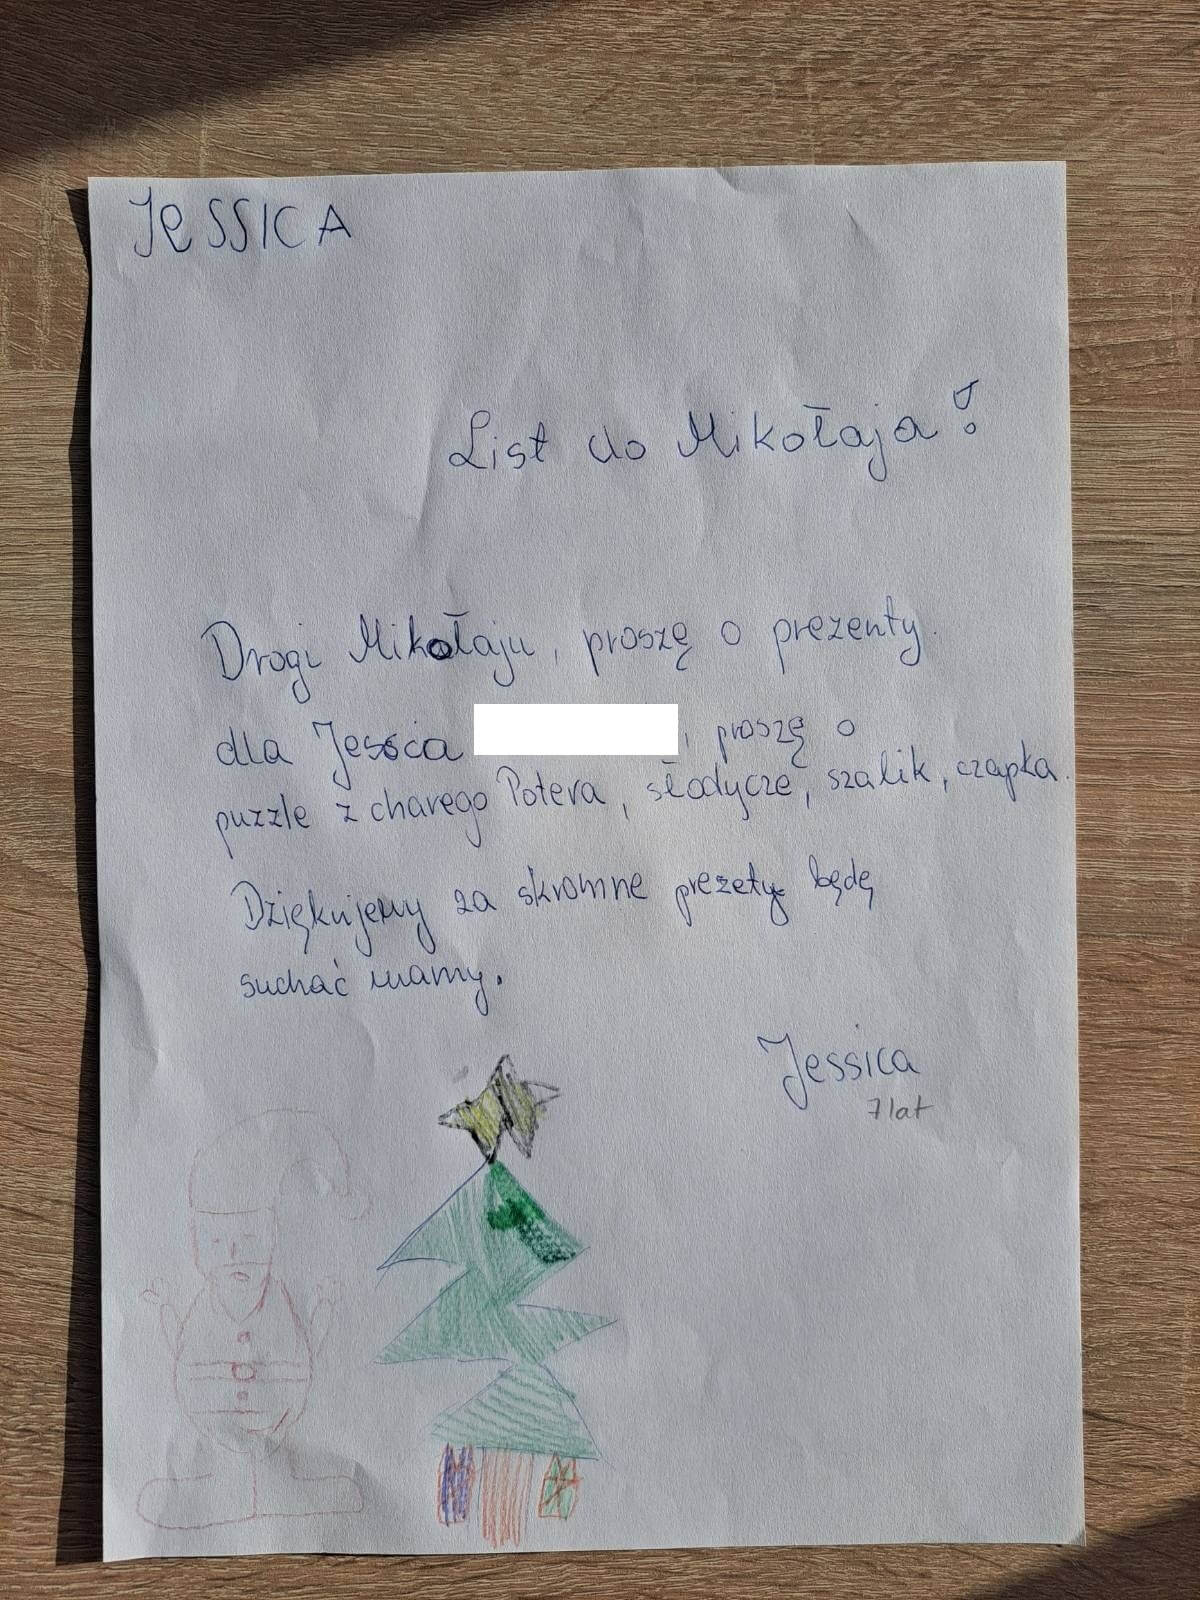 JeSSICA
List do Mikołaja!
Drogi Mikołaju, proszę o prezenty.
dla Jessica , proszę o
puzzle z charego Potera, słodycze, szalik, czapka.
Dziękujemy za skromne prezety będę
suchać mamy.
Jessica
7 lat